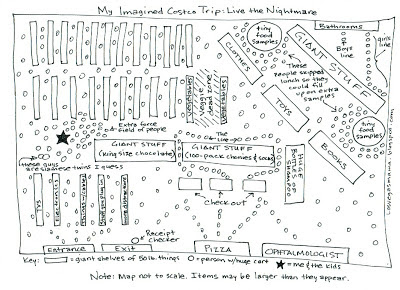 My Imagined Costco Trip: Live the Nightmare
Bathrooms
Boys line
girls line
tiny
food
samples
GIANT STUFF
CLOTHES
These
People skipped
lunch so they
could fill
up on extra
samples
TOYS
tiny
food
samples
BOOKS
vegetables
Veggie/
dairy line
Extra force
field of people
GIANT STUFF
(king size chocolate)
The line-ups
GIANT STUFF
(100-pack chonies & socks)
HUGE
BARRELS OF
SHAMPOO
check out
these guys
are siamese twins I guess
TVs
Electronics
Receipt
checker
Entrance
Exit
PIZZA
OPHTALMOLOGIST
Key:
=giant shelves of 50 lb. things
=person w/huge cart
=me & the kids
Note: Map not to scale. Items may be larger than they appear.